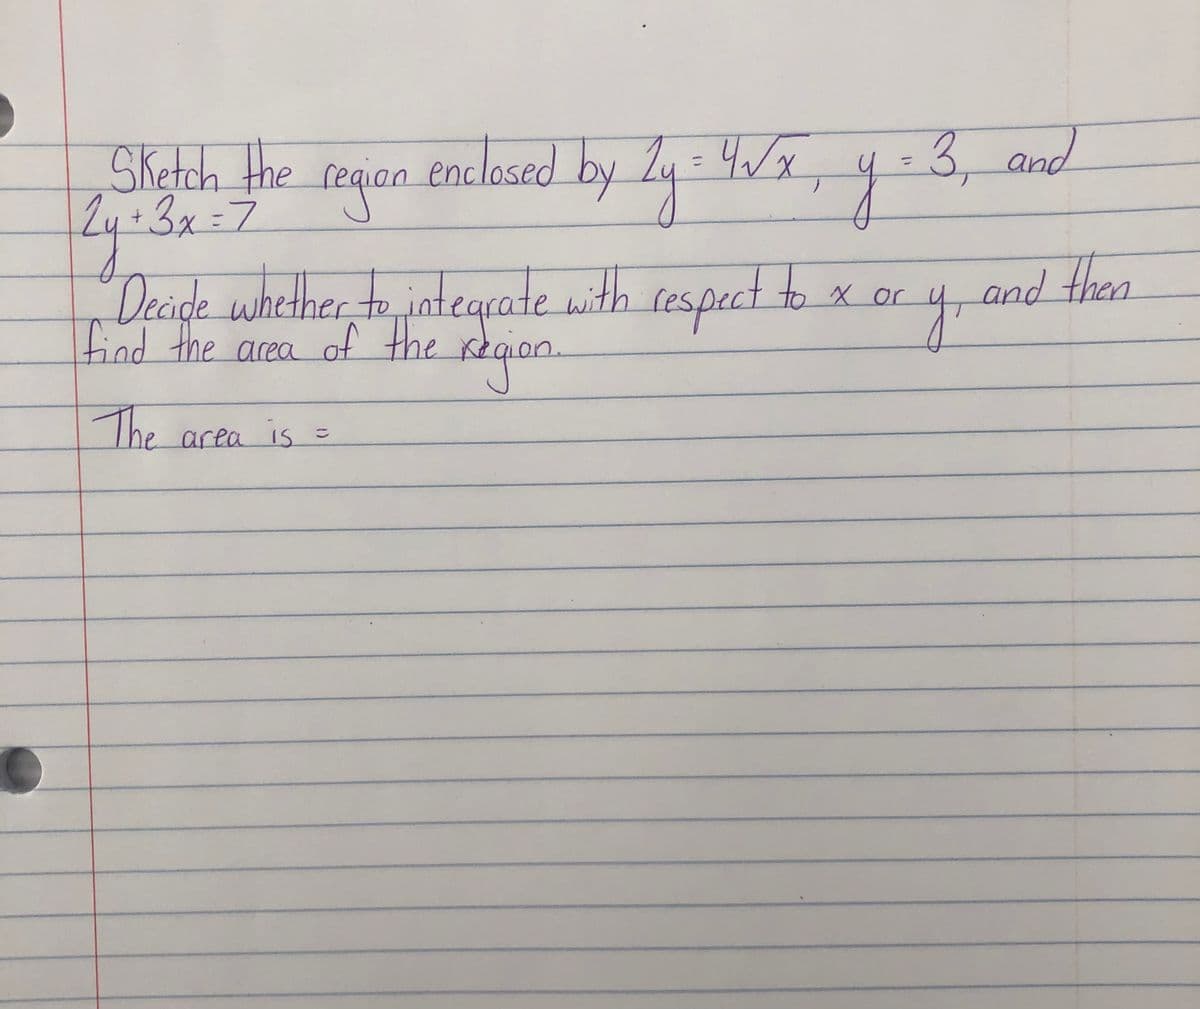 Sketch the region enclosed by 2y = 4√x, y = 3, and
2y + 3x = 7
Decide whether to integrate with respect to x or y, and then
find the area of the region.
The area is =